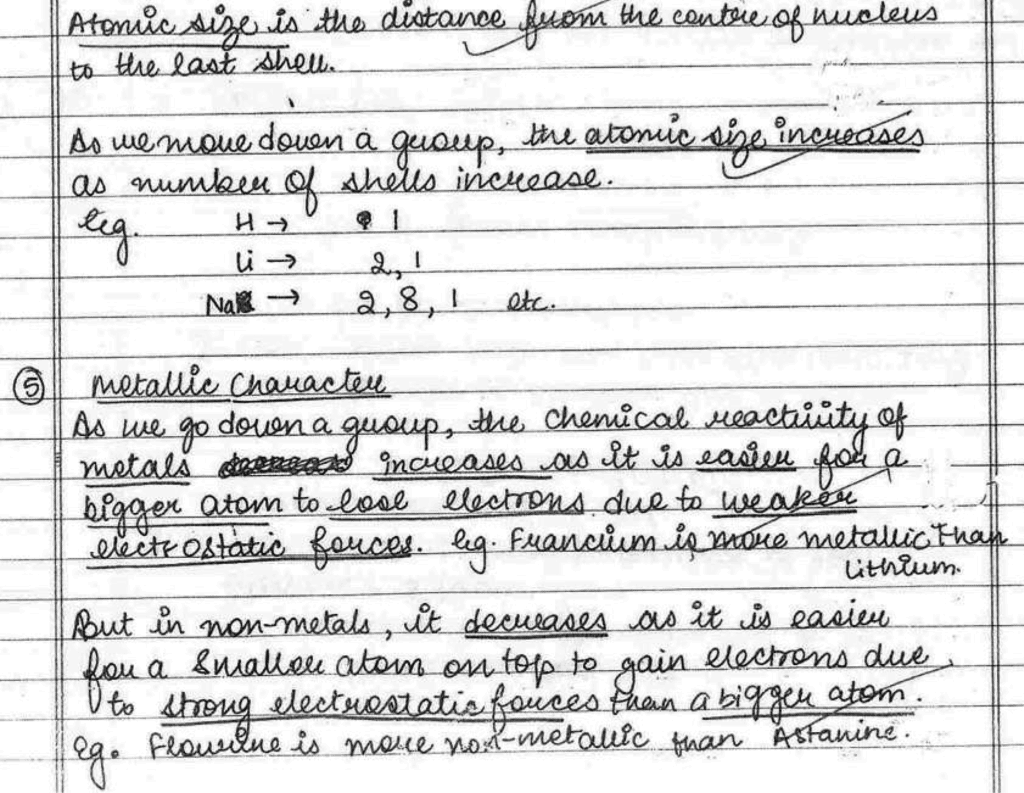 Atomic size is the distance from the centre of nucleus
to the last shell.
As we move down a group, the atomic size increases
as number of shells increase.
Eg. H → 1
Li → 2, 1
Na → 2, 8, 1 etc.
⑤ Metallic Character
As we go down a group, the chemical reactivity of
metals increases as it is easier for a
bigger atom to lose electrons due to weaker
electrostatic forces. Eg. Francium is more metallic than
Lithium.
But in non-metals, it decreases as it is easier
for a smaller atom on top to gain electrons due
to strong electrostatic forces than a bigger atom.
Eg. Flourine is more non-metallic than Astanine.